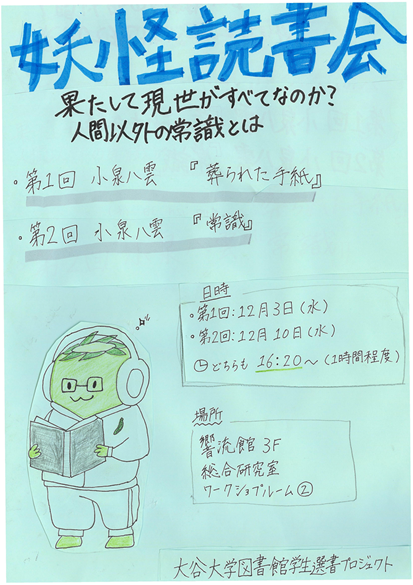 妖怪読書会
果たして現世がすべてなのか?
人間以外の常識とは
・第1回 小泉八雲 『葬られた手紙』
・第2回 小泉八雲 『常識』
日時
・第1回:12月3日(水)
・第2回:12月10日(水)
どちらも 16:20〜(1時間程度)
場所
響流館 3F
総合研究室
ワークショプルーム②
大谷大学図書館学生選書プロジェクト